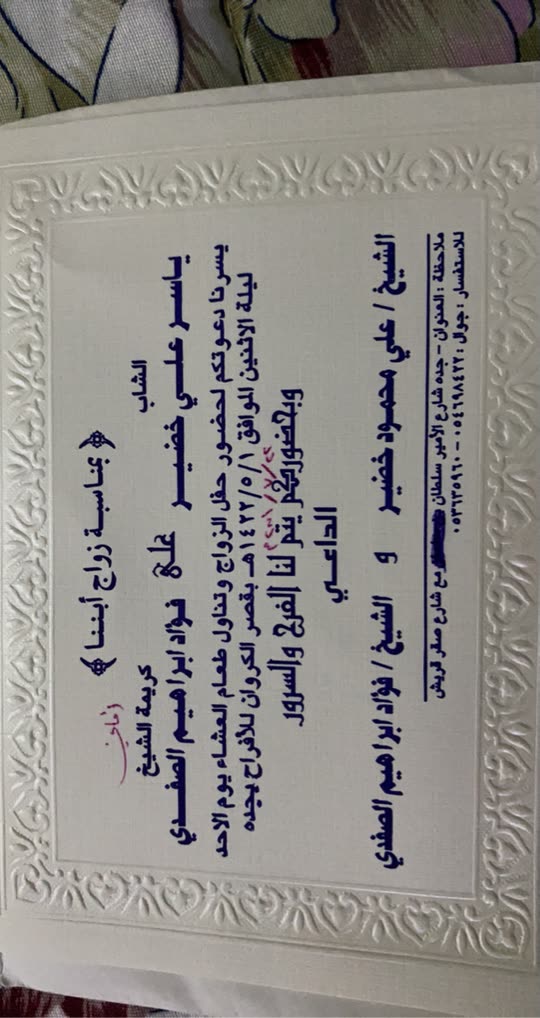 ﴿ بمناسبة زواج أبننا ﴾
الشاب
كريمة الشيخ
ياسر علي خضير على فؤاد ابراهيم الصفدي
يسرنا دعوتكم لحضور حفل الزواج وتناول طعام العشاء يوم الاحد
ليلة الاثنين الموافق ١٤٢٢/٥/١هـ بقصر الكروان للأفراح بجده
وبحضوركم يتم لنا الفرح والسرور
الداعي
الشيخ / علي محمود خضير و الشيخ / فؤاد ابراهيم الصفدي
ملاحظة : العنوان - جده شارع الأمير سلطان مع شارع صقر قريش
للاستفسار : جوال : ٠٥٤٦٩٨٤٢٢ - ٠٥٣٦١٣٥٩٦٠